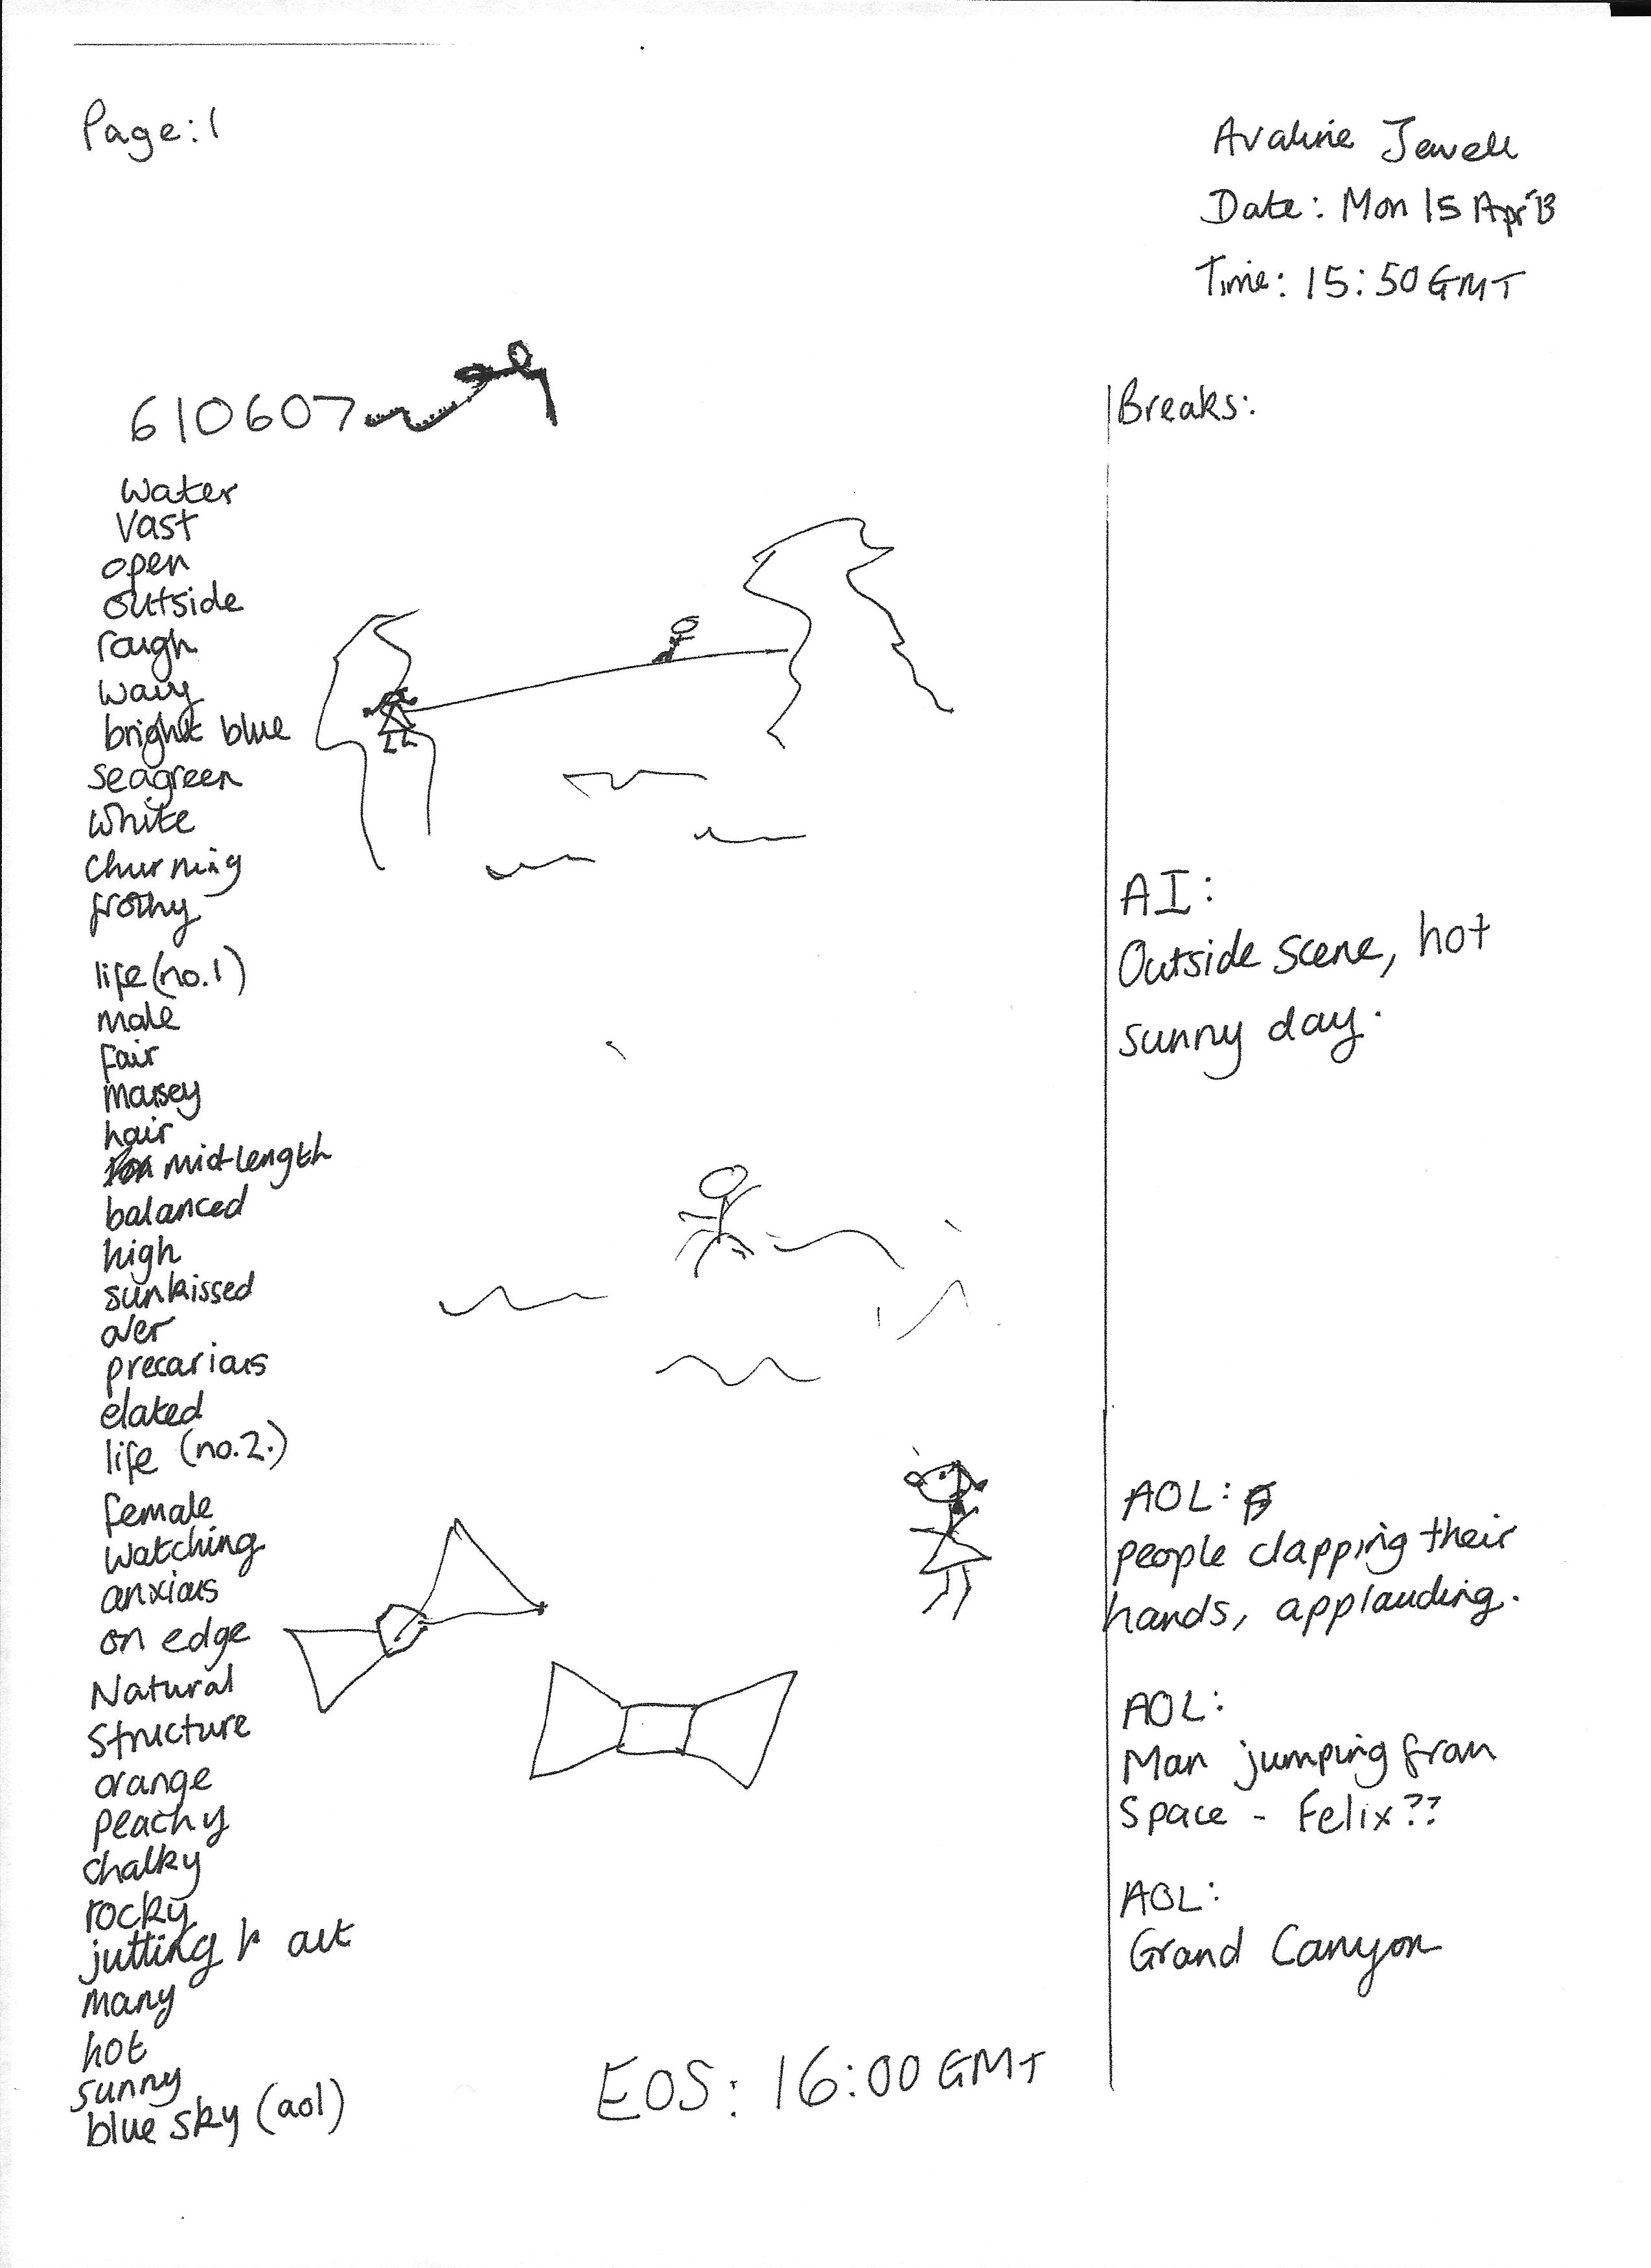 Page: 1
Avaline Jewell
Date: Mon 15 Apr 13
Time: 15:50 GMT
610607
Breaks:
water
Vast
open
outside
rough
wavy
bright blue
seagreen
white
churning
frothy
life (no.1)
male
fair
hair
mid-length
balanced
high
sunkissed
over
precarious
elated
life (no.2.)
female
watching
anxious
on edge
Natural
structure
orange
peachy
chalky
rocky
jutting out
many
hot
sunny
blue sky (aol)
AI:
Outside scene, hot
sunny day.
AOL:
people clapping their
hands, applauding.
AOL:
Man jumping from
Space - Felix??
AOL:
Grand Canyon
EOS: 16:00 GMT